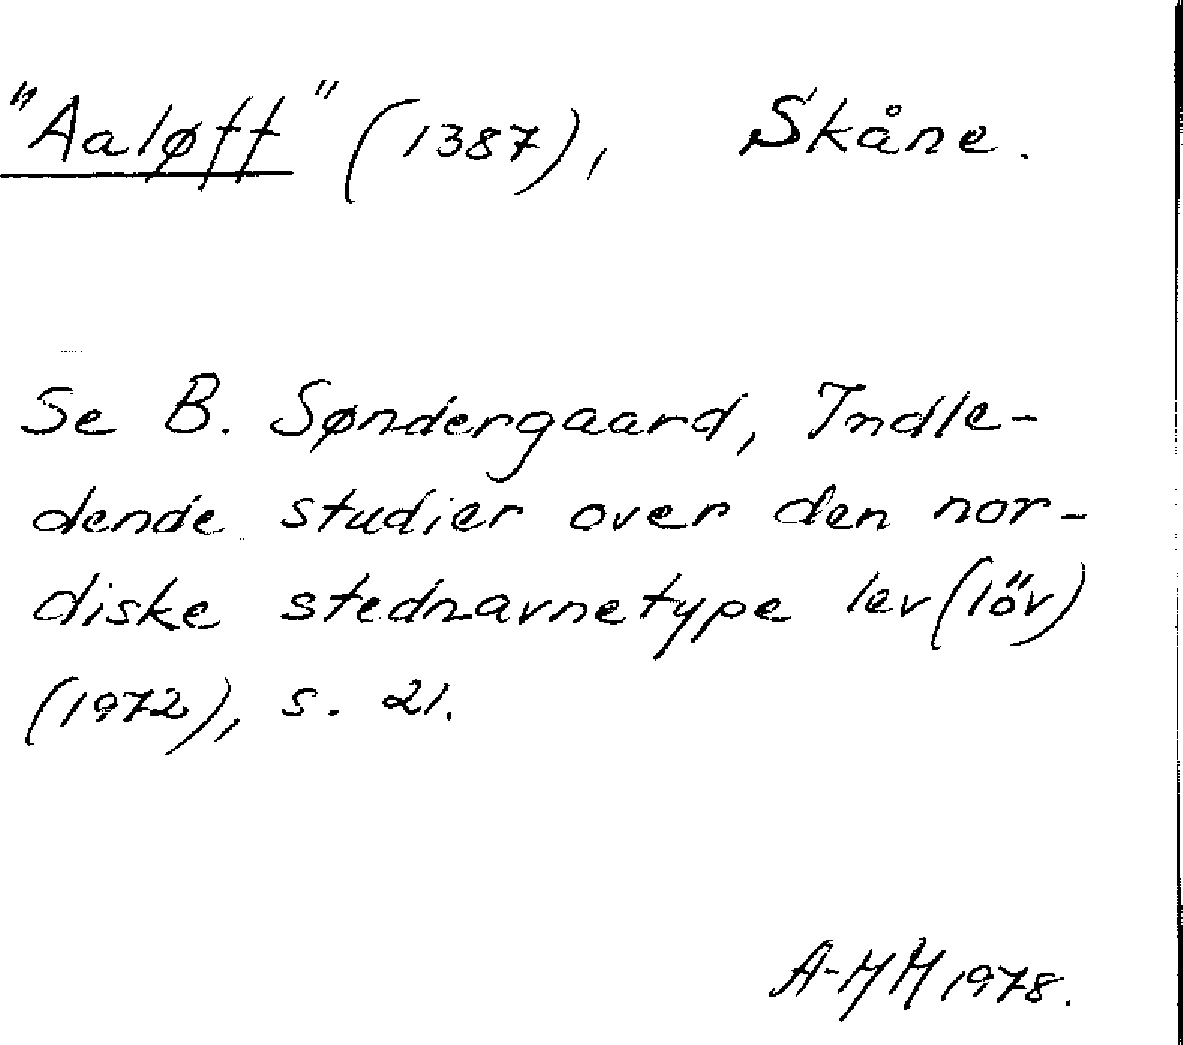 "Aaløff" (1387), Skåne.
Se B. Søndergaard, Indle-
dende studier over den nor-
diske stednavnetype lev(löv)
(1972), s. 21.
A-HH 1978.